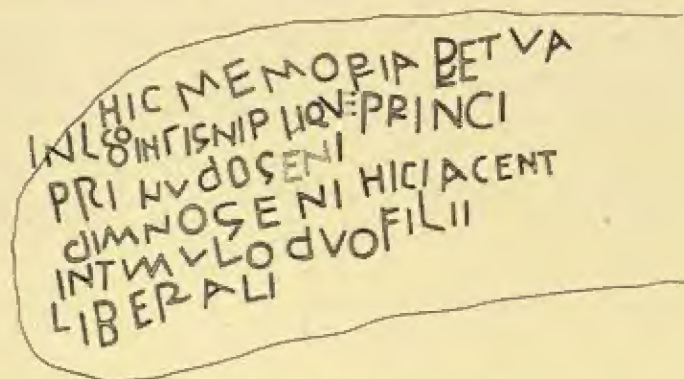 HIC MEMORIA PETVA
PRINCI
PRI NVdOSENI
dIMNOGENI HICIACENT
INTVMVLO dVOFILII
LIBERALI